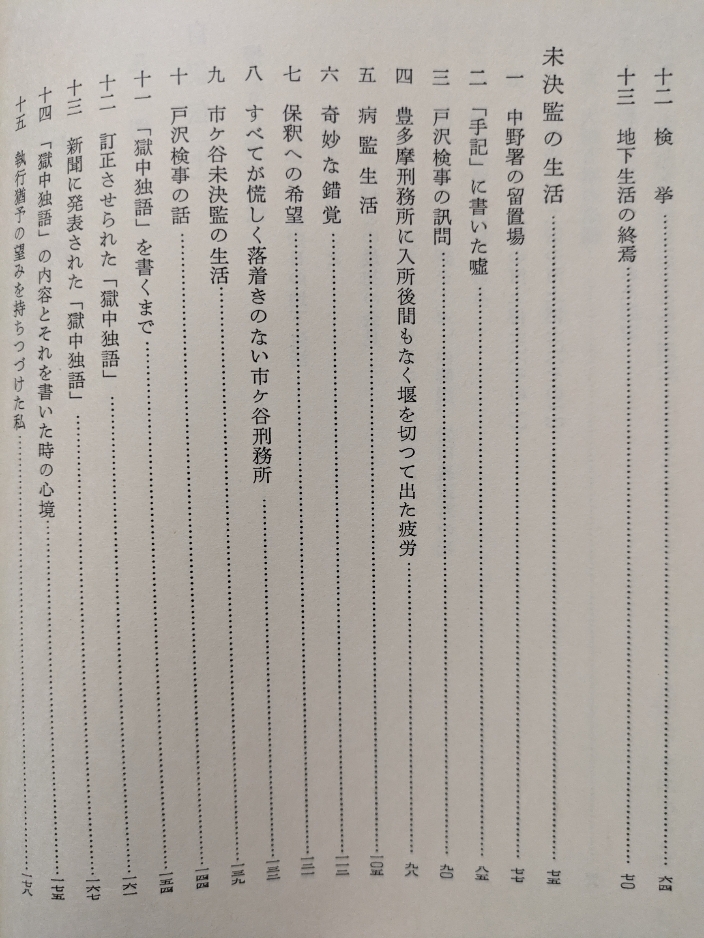 十二　検　挙……六四
十三　地下生活の終焉……七〇
未決監の生活……七五
一　中野署の留置場……七七
二　「手記」に書いた嘘……八五
三　戸沢検事の訊問……九〇
四　豊多摩刑務所に入所後間もなく堰を切つて出た疲労……九八
五　病監生活……一〇五
六　奇妙な錯覚……一一二
七　保釈への希望……一二一
八　すべてが慌しく落着きのない市ケ谷刑務所……一三二
九　市ケ谷未決監の生活……一三九
十　戸沢検事の話……一四四
十一　「獄中独語」を書くまで……一五四
十二　訂正させられた「獄中独語」……一六一
十三　新聞に発表された「獄中独語」……一六七
十四　「獄中独語」の内容とそれを書いた時の心境……一七五
十五　執行猶予の望みを持ちつづけた私……一七八